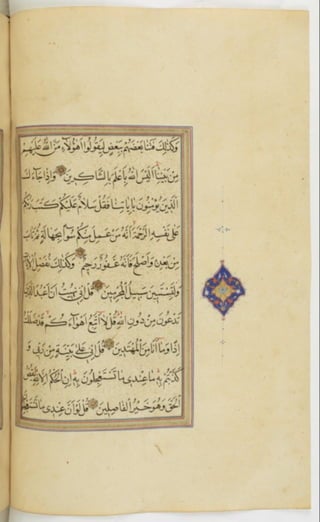 وَكَذٰلِكَ فَتَنَّا بَعْضَهُمْ بِبَعْضٍ لِيَقُولُوا اَهٰؤُلَاءِ مَنَّ اللّٰهُ عَلَيْهِمْ
مِنْ بَيْنِنَا اَلَيْسَ اللّٰهُ بِاَعْلَمَ بِالشَّاكِرِينَ وَاِذَا جَاءَكَ
الَّذِينَ يُؤْمِنُونَ بِاٰيَاتِنَا فَقُلْ سَلَامٌ عَلَيْكُمْ كَتَبَ رَبُّكُمْ
عَلٰى نَفْسِهِ الرَّحْمَةَ اَنَّهُ مَنْ عَمِلَ مِنْكُمْ سُوءًا بِجَهَالَةٍ ثُمَّ تَابَ
مِنْ بَعْدِهِ وَاَصْلَحَ فَاَنَّهُ غَفُورٌ رَحِيمٌ وَكَذٰلِكَ نُفَصِّلُ الْاٰيَاتِ
وَلِتَسْتَبِينَ سَبِيلُ الْمُجْرِمِينَ قُلْ اِنِّي نُهِيتُ اَنْ اَعْبُدَ الَّذِينَ
تَدْعُونَ مِنْ دُونِ اللّٰهِ قُلْ لَا اَتَّبِعُ اَهْوَاءَكُمْ قَدْ ضَلَلْتُ
اِذًا وَمَا اَنَا مِنَ الْمُهْتَدِينَ قُلْ اِنِّي عَلٰى بَيِّنَةٍ مِنْ رَبِّي وَ
كَذَّبْتُمْ بِهِ مَا عِنْدِي مَا تَسْتَعْجِلُونَ بِهِ اِنِ الْحُكْمُ اِلَّا لِلّٰهِ يَقُصُّ
الْحَقَّ وَهُوَ خَيْرُ الْفَاصِلِينَ قُلْ لَوْ اَنَّ عِنْدِي مَا تَسْتَعْجِلُونَ